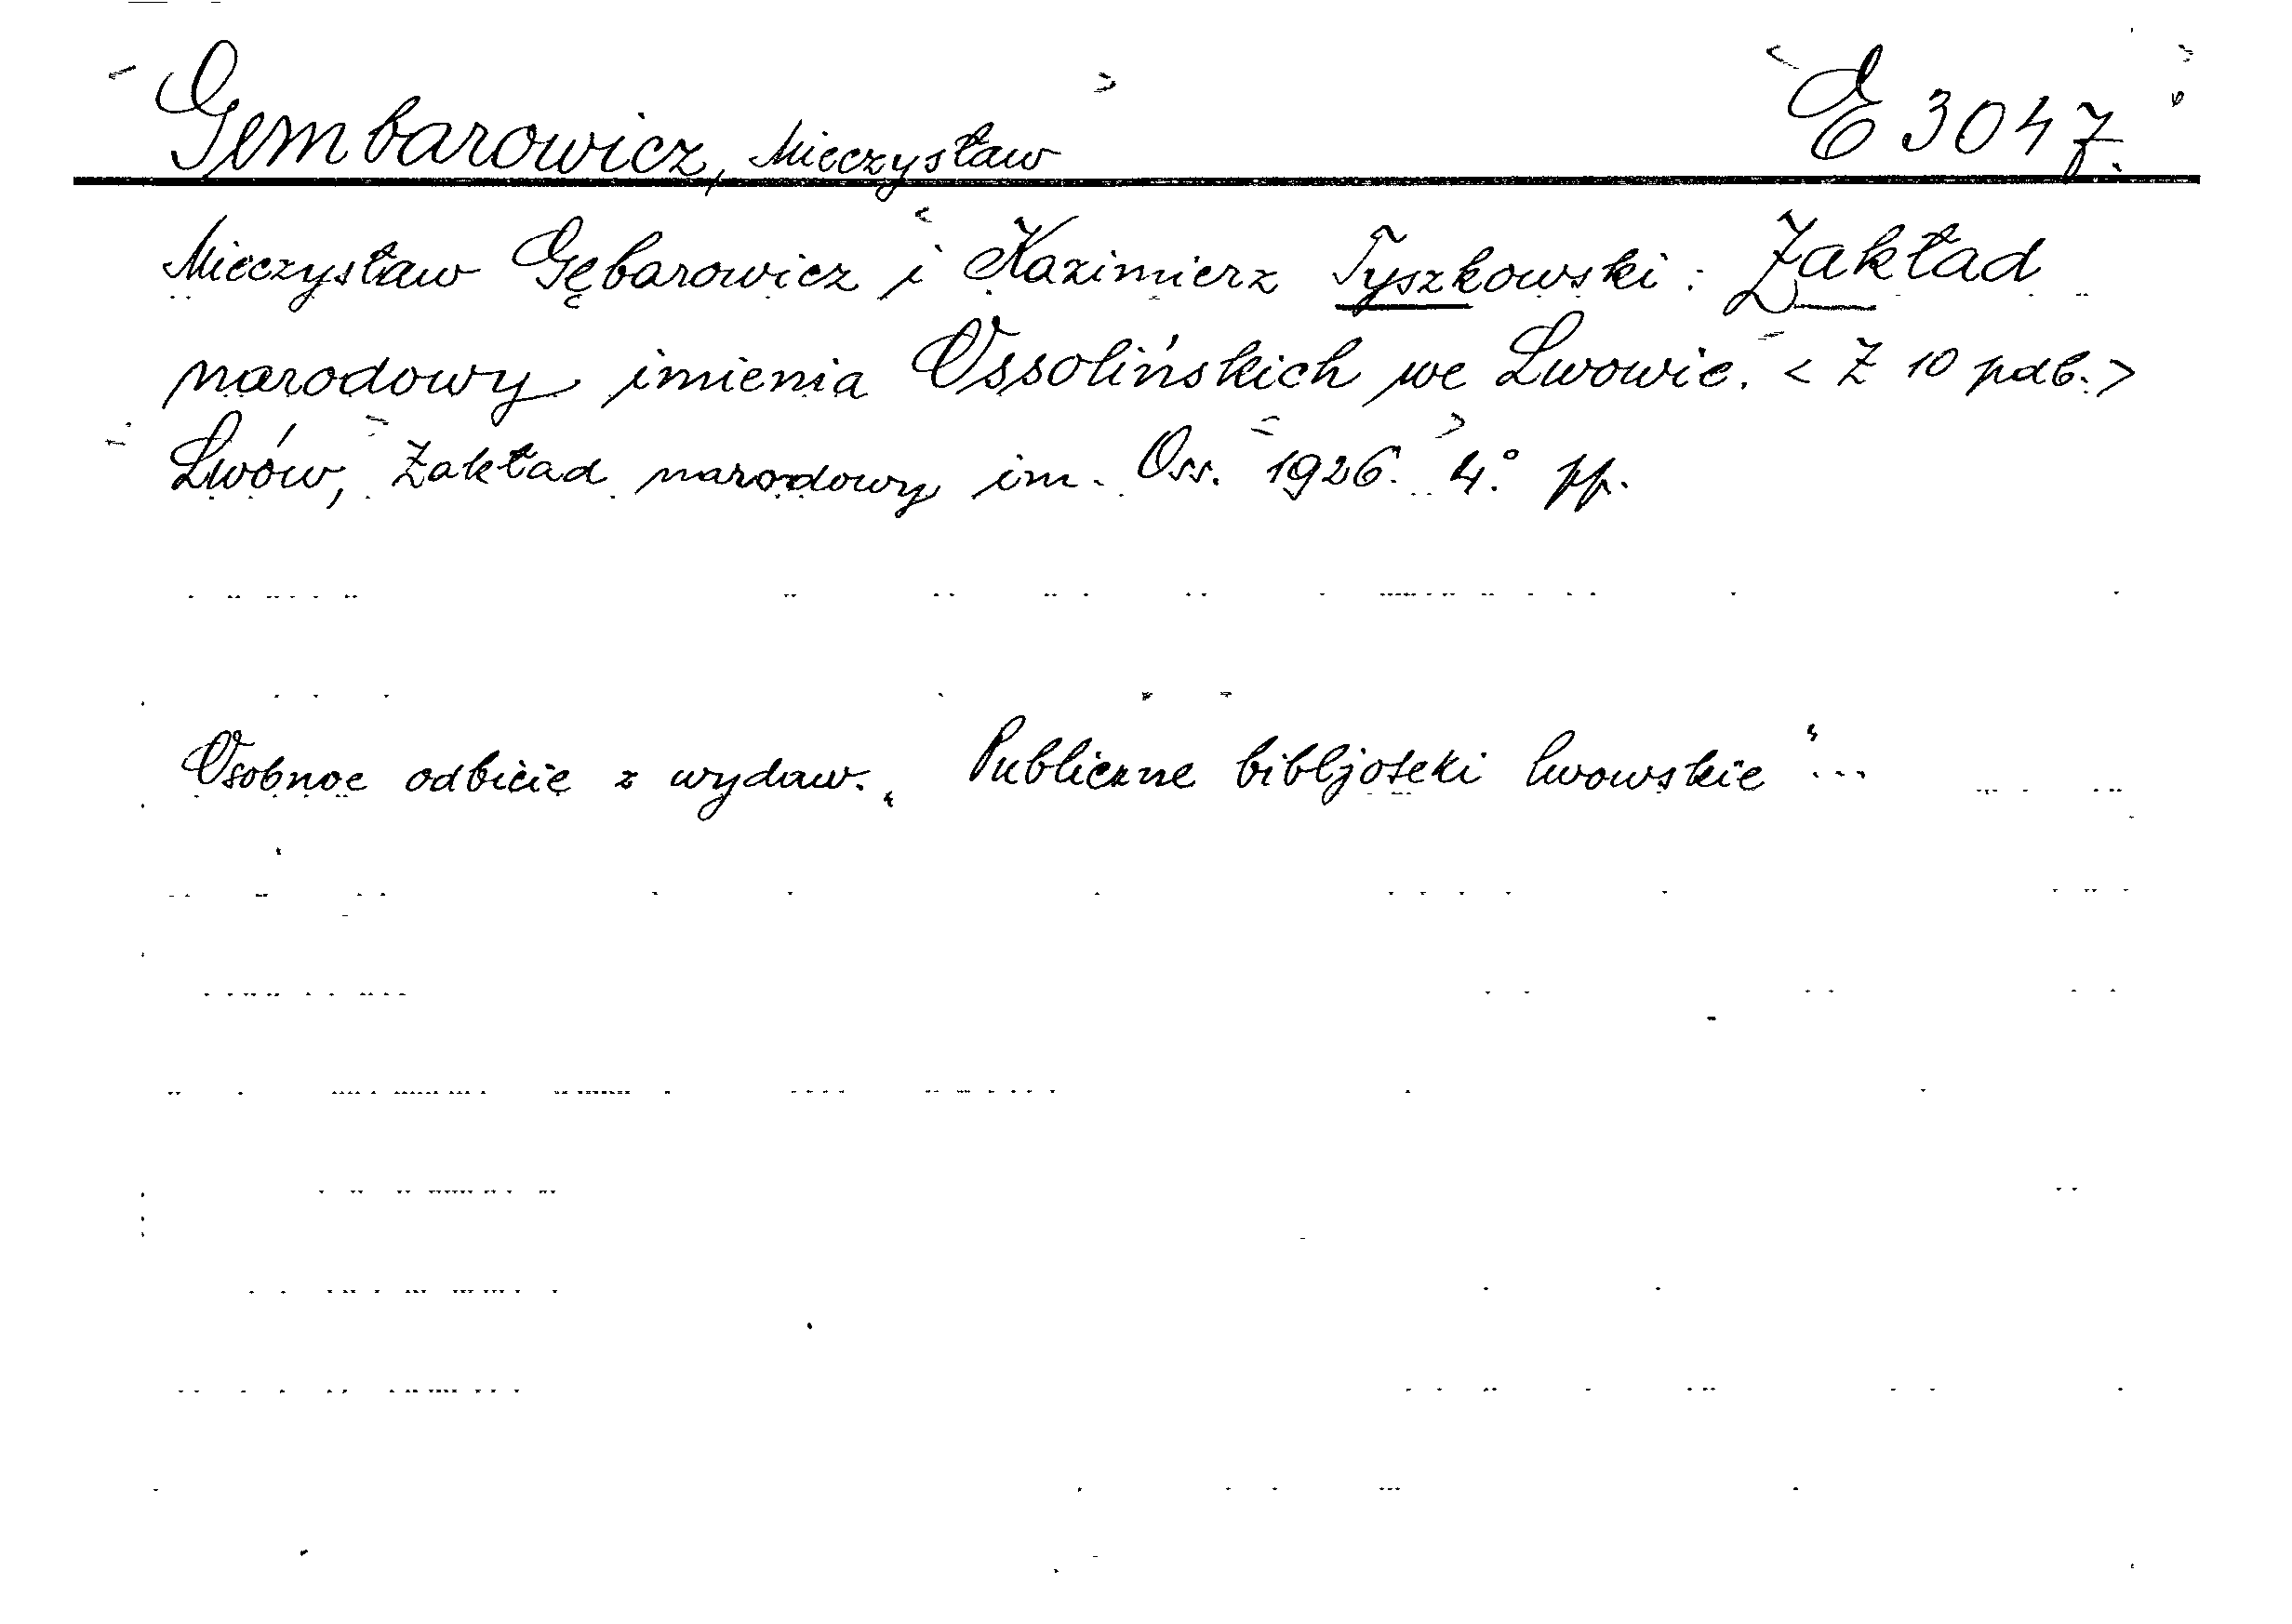 Gembarowicz, Mieczysław E 3047.
Mieczysław Gębarowicz i Kazimierz Tyszkowski: Zakład
narodowy imienia Ossolińskich we Lwowie. < Z 10 pdb. >
Lwów, Zakład narodowy im. Oss. 1926. 4.° pp.
Osobne odbicie z wydaw. „Publiczne bibljoteki lwowskie“...